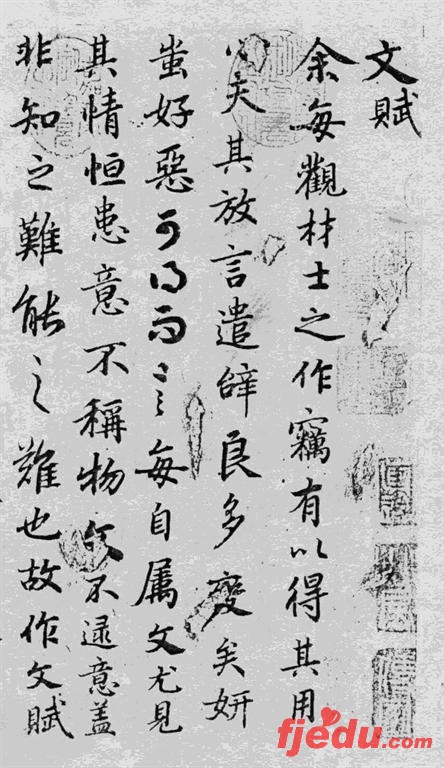 文賦
余每觀材士之作竊有以得其用
心夫其放言遣辭良多變矣妍
蚩好惡可得而言每自属文尤見
其情恒患意不稱物文不逮意盖
非知之難能之難也故作文賦
fjedu.com